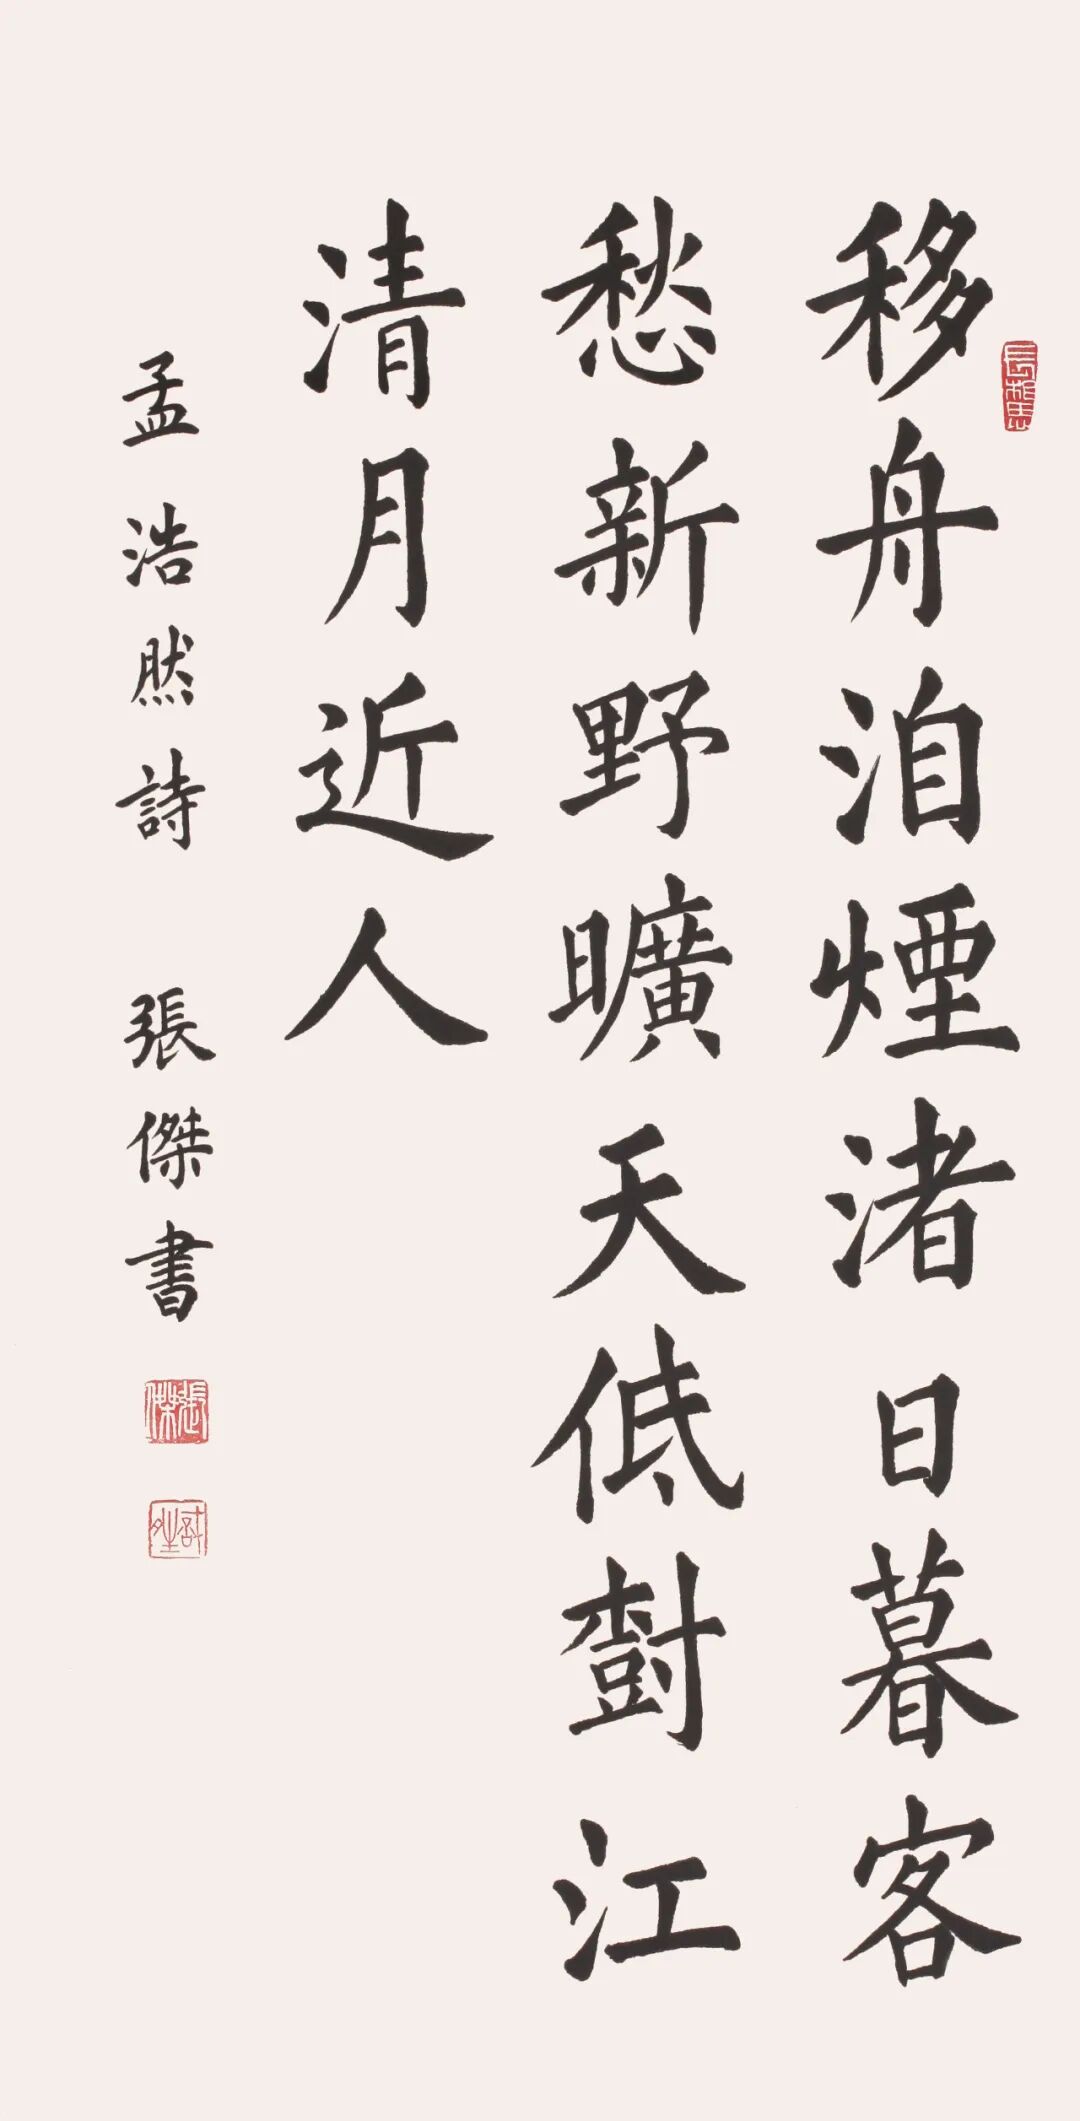 移舟泊煙渚日暮客
愁新野曠天低樹江
清月近人
孟浩然詩 張傑書
長相思
張傑